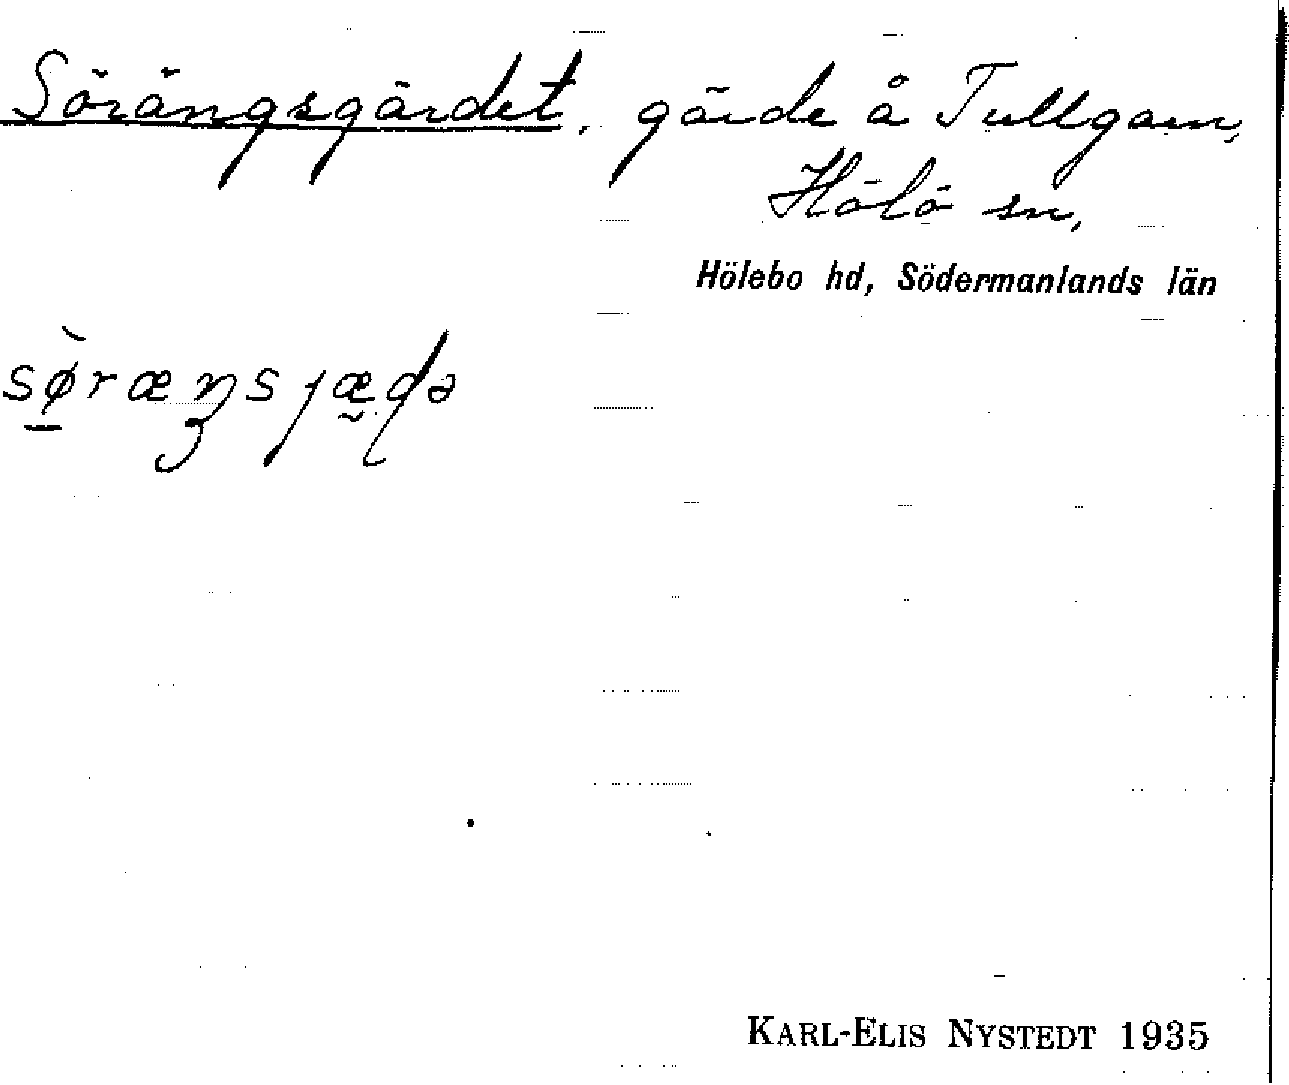 Sörängsgärdet, gärde å Tullgarn,
Hölö sn,
Hölebo hd, Södermanlands län
sø̀ræŋsjæɖə
KARL-ELIS NYSTEDT 1935